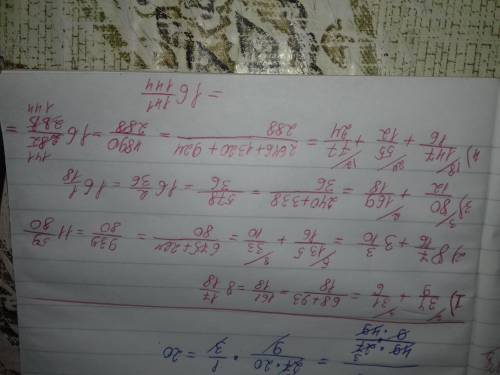 = 27·20/9 · 1/3 = 20
1) 34/9 + 31/6 = 68+93/18 = 161/18 = 8 17/18
2) 8 7/16 + 3 3/10 = 135/16 + 33/10 = 675+264/80 = 939/80 = 11 59/80
3) 80/12 + 169/18 = 240+338/36 = 578/36 = 16 2/36 = 16 1/18
4) 147/16 + 55/12 + 77/24 = 2646+1320+924/288 = 4890/288 = 16 282/288 =
= 16 141/144